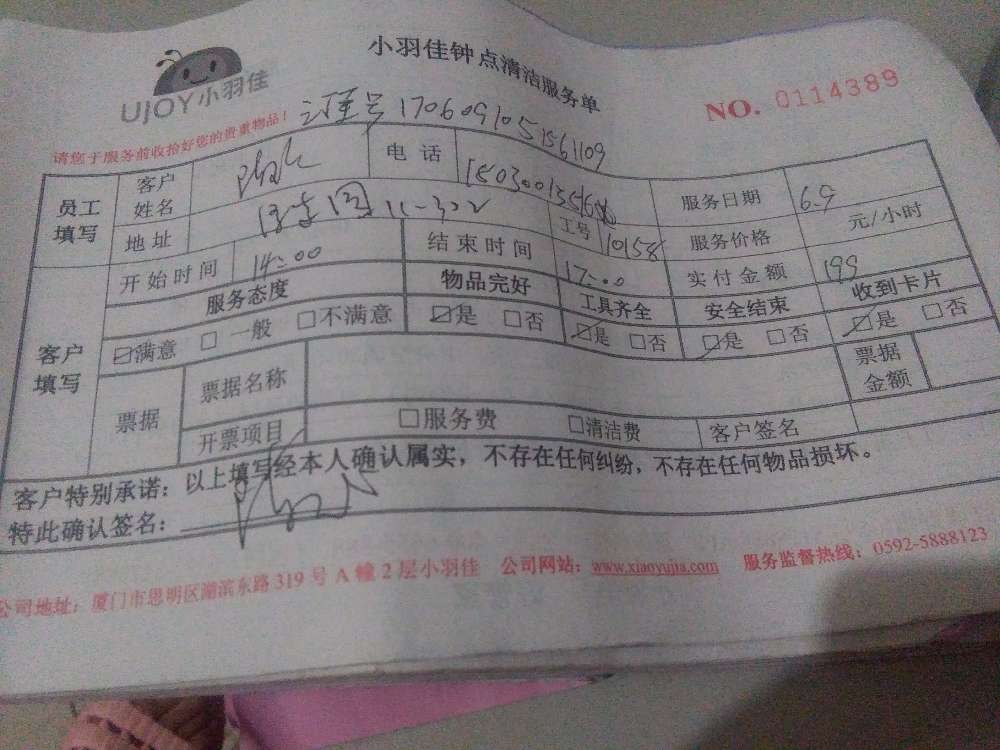 UJOY小羽佳
小羽佳钟点清洁服务单
NO. 0114389
请您于服务前收拾好您的贵重物品！
170609105156 1109
员工填写 客户姓名 电话 服务日期 6.9
地址 11-302 工号 10158 服务价格 元/小时
开始时间 14:00 结束时间 17:00 实付金额 199
客户填写 服务态度 物品完好 工具齐全 安全结束 收到卡片
☑满意 □一般 □不满意 ☑是 □否 ☑是 □否 ☑是 □否 ☑是 □否
票据 票据名称 票据金额
开票项目 □服务费 □清洁费 客户签名
客户特别承诺：以上填写经本人确认属实，不存在任何纠纷，不存在任何物品损坏。
特此确认签名：
公司地址：厦门市思明区湖滨东路319号A幢2层小羽佳 公司网站：www.xiaoyujia.com 服务监督热线：0592-5888123